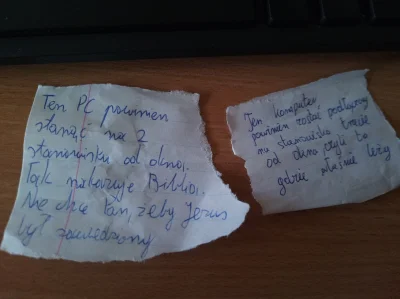 Ten PC powinien
stanąć na 2
stanowisku od okna.
Tak nakazuje Biblia.
Nie chce tam, żeby Jezus
był zawiedziony
Ten komputer
powinien zostać podłączony
na stanowisku trzecie
od okna czyli to
gdzie właśnie leży